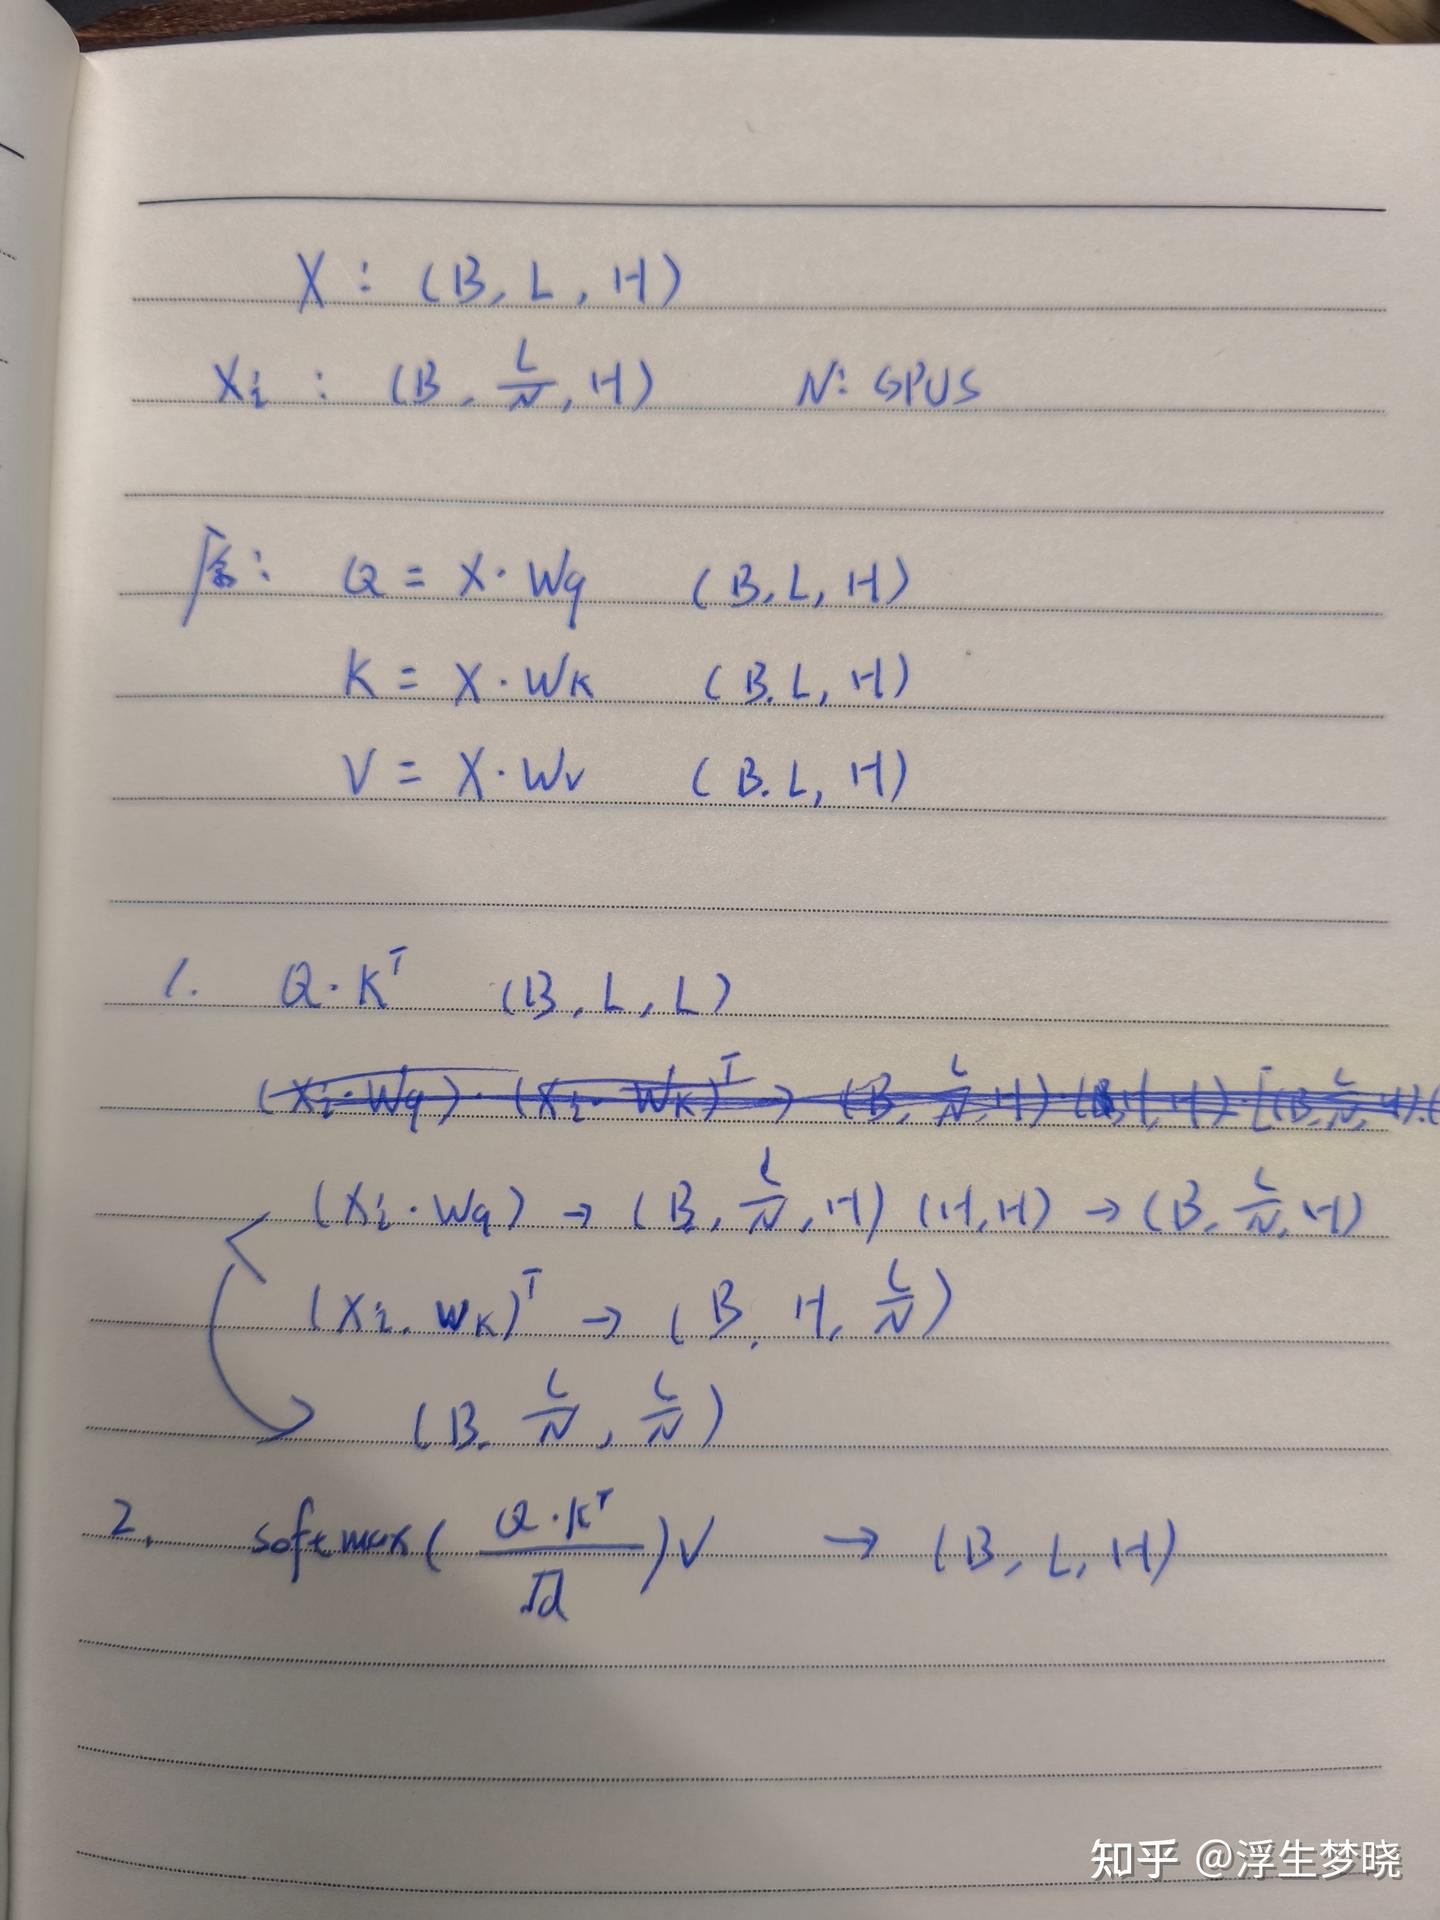 X : (B, L, H)
Xi : (B, L/N, H) N: GPUS
原: Q = X · Wq (B, L, H)
K = X · WK (B, L, H)
V = X · Wv (B, L, H)
1. Q · K^T (B, L, L)
(Xi · Wq) · (Xi · WK)^T → (B, L/N, H) ·
(Xi · Wq) → (B, L/N, H) (H, H) → (B, L/N, H)
(Xi · WK)^T → (B, H, L/N)
(B, L/N, L/N)
2. softmax( Q · K^T / √d ) V → (B, L, H)
知乎 @浮生梦晓